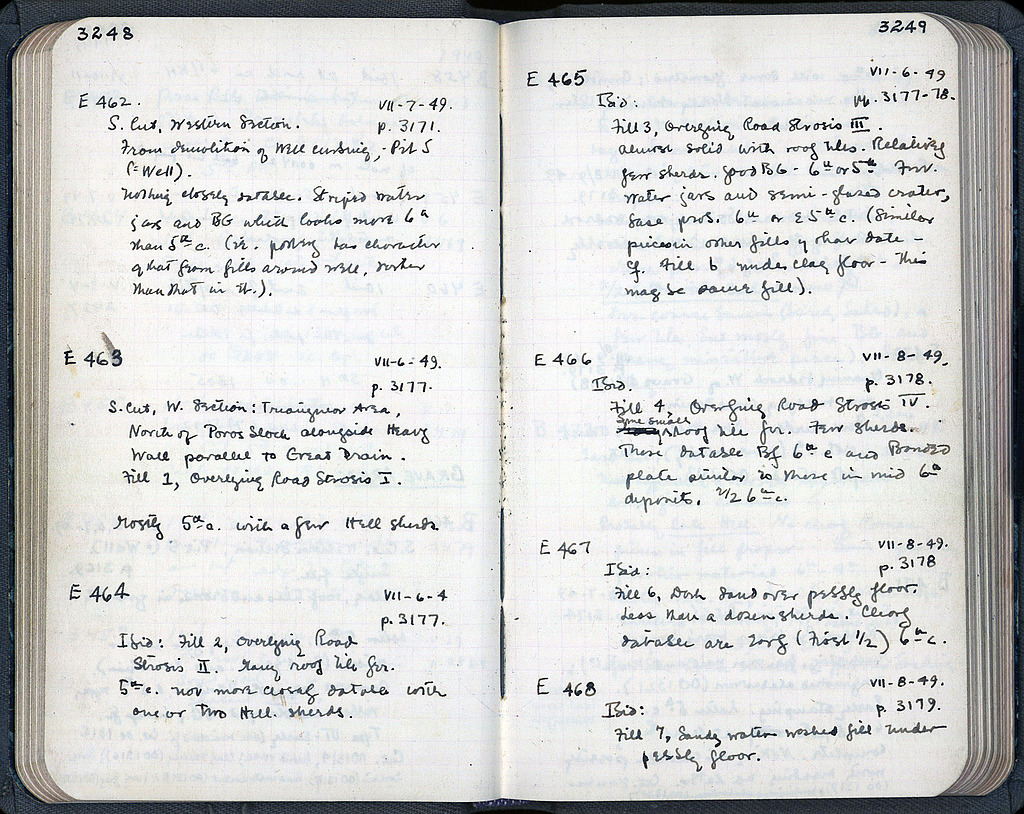 3248
E 462. VII-7-49.
S. Cut, Western Section. p. 3171.
From demolition of Well curbing, - Pit 5
(= Well).
Nothing closely datable. Striped water
jars and BG which looks more 6th
than 5th c. (i.e. pottery has character
of that from fills around well, rather
than that in it.).
E 463 VII-6-49.
p. 3177.
S. Cut, W. Section: Triangular Area,
North of Poros Block alongside Heavy
Wall parallel to Great Drain.
Fill 1, Overlying Road Strosis I.
Mostly 5th c. with a few Hell sherds
E 464 VII-6-4
p. 3177.
Ibid: Fill 2, Overlying Road
Strosis II. Many roof tile frr.
5th c. not more closely datable with
one or two Hell. sherds.
3249
E 465 VII-6-49
Ibid: pp. 3177-78.
Fill 3, Overlying Road Strosis III.
almost solid with roof tiles. Relatively
few sherds. good BG - 6th or 5th. Frr.
water jars and semi-glazed crater,
base prob. 6th or E 5th c. (Similar
pieces in other fills of that date -
Cf. Fill 6 under clay floor - this
may be same fill).
E 466 VII-8-49.
Ibid. p. 3178.
Fill 4, Overlying Road Strosis IV.
Some small
roof tile frr. Few sherds.
Those datable Bf 6th c and Banded
plate similar to those in mid 6th
deposits. 2/2 6th c.
E 467 VII-8-49.
Ibid: p. 3178
Fill 6, Dark sand over pebbly floor.
Less than a dozen sherds. Clearly
datable are early (First 1/2) 6th c.
E 468 VII-8-49.
Ibid: p. 3179.
Fill 7, Sandy water washed fill under
pebbly floor.